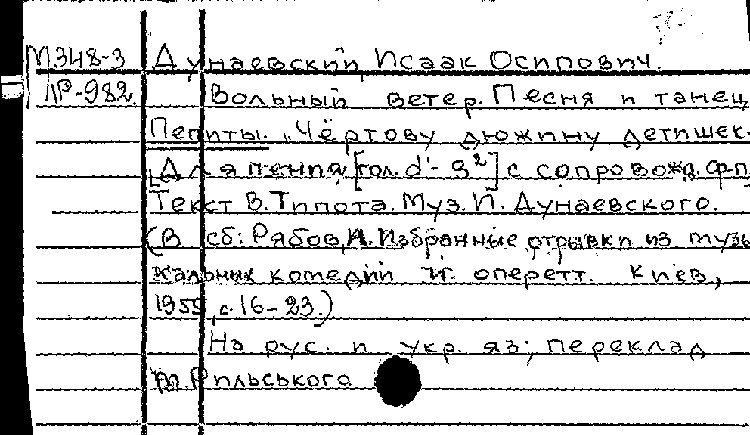 М348-3 Дунаевский, Исаак Осипович.
ПР-982 Вольный ветер. Песня и танец
Пепиты. „Чёртову дюжину детишек.
[Для пения [гол. d'- g²] с сопровожд. ф-п.
Текст В. Типота. Муз. И. Дунаевского.
(В сб: Рябов, И. Избранные отрывки из музы-
кальных комедий и оперетт. Киев,
1955, с. 16-23.)
На рус. и укр. яз; переклад
М. Рильського